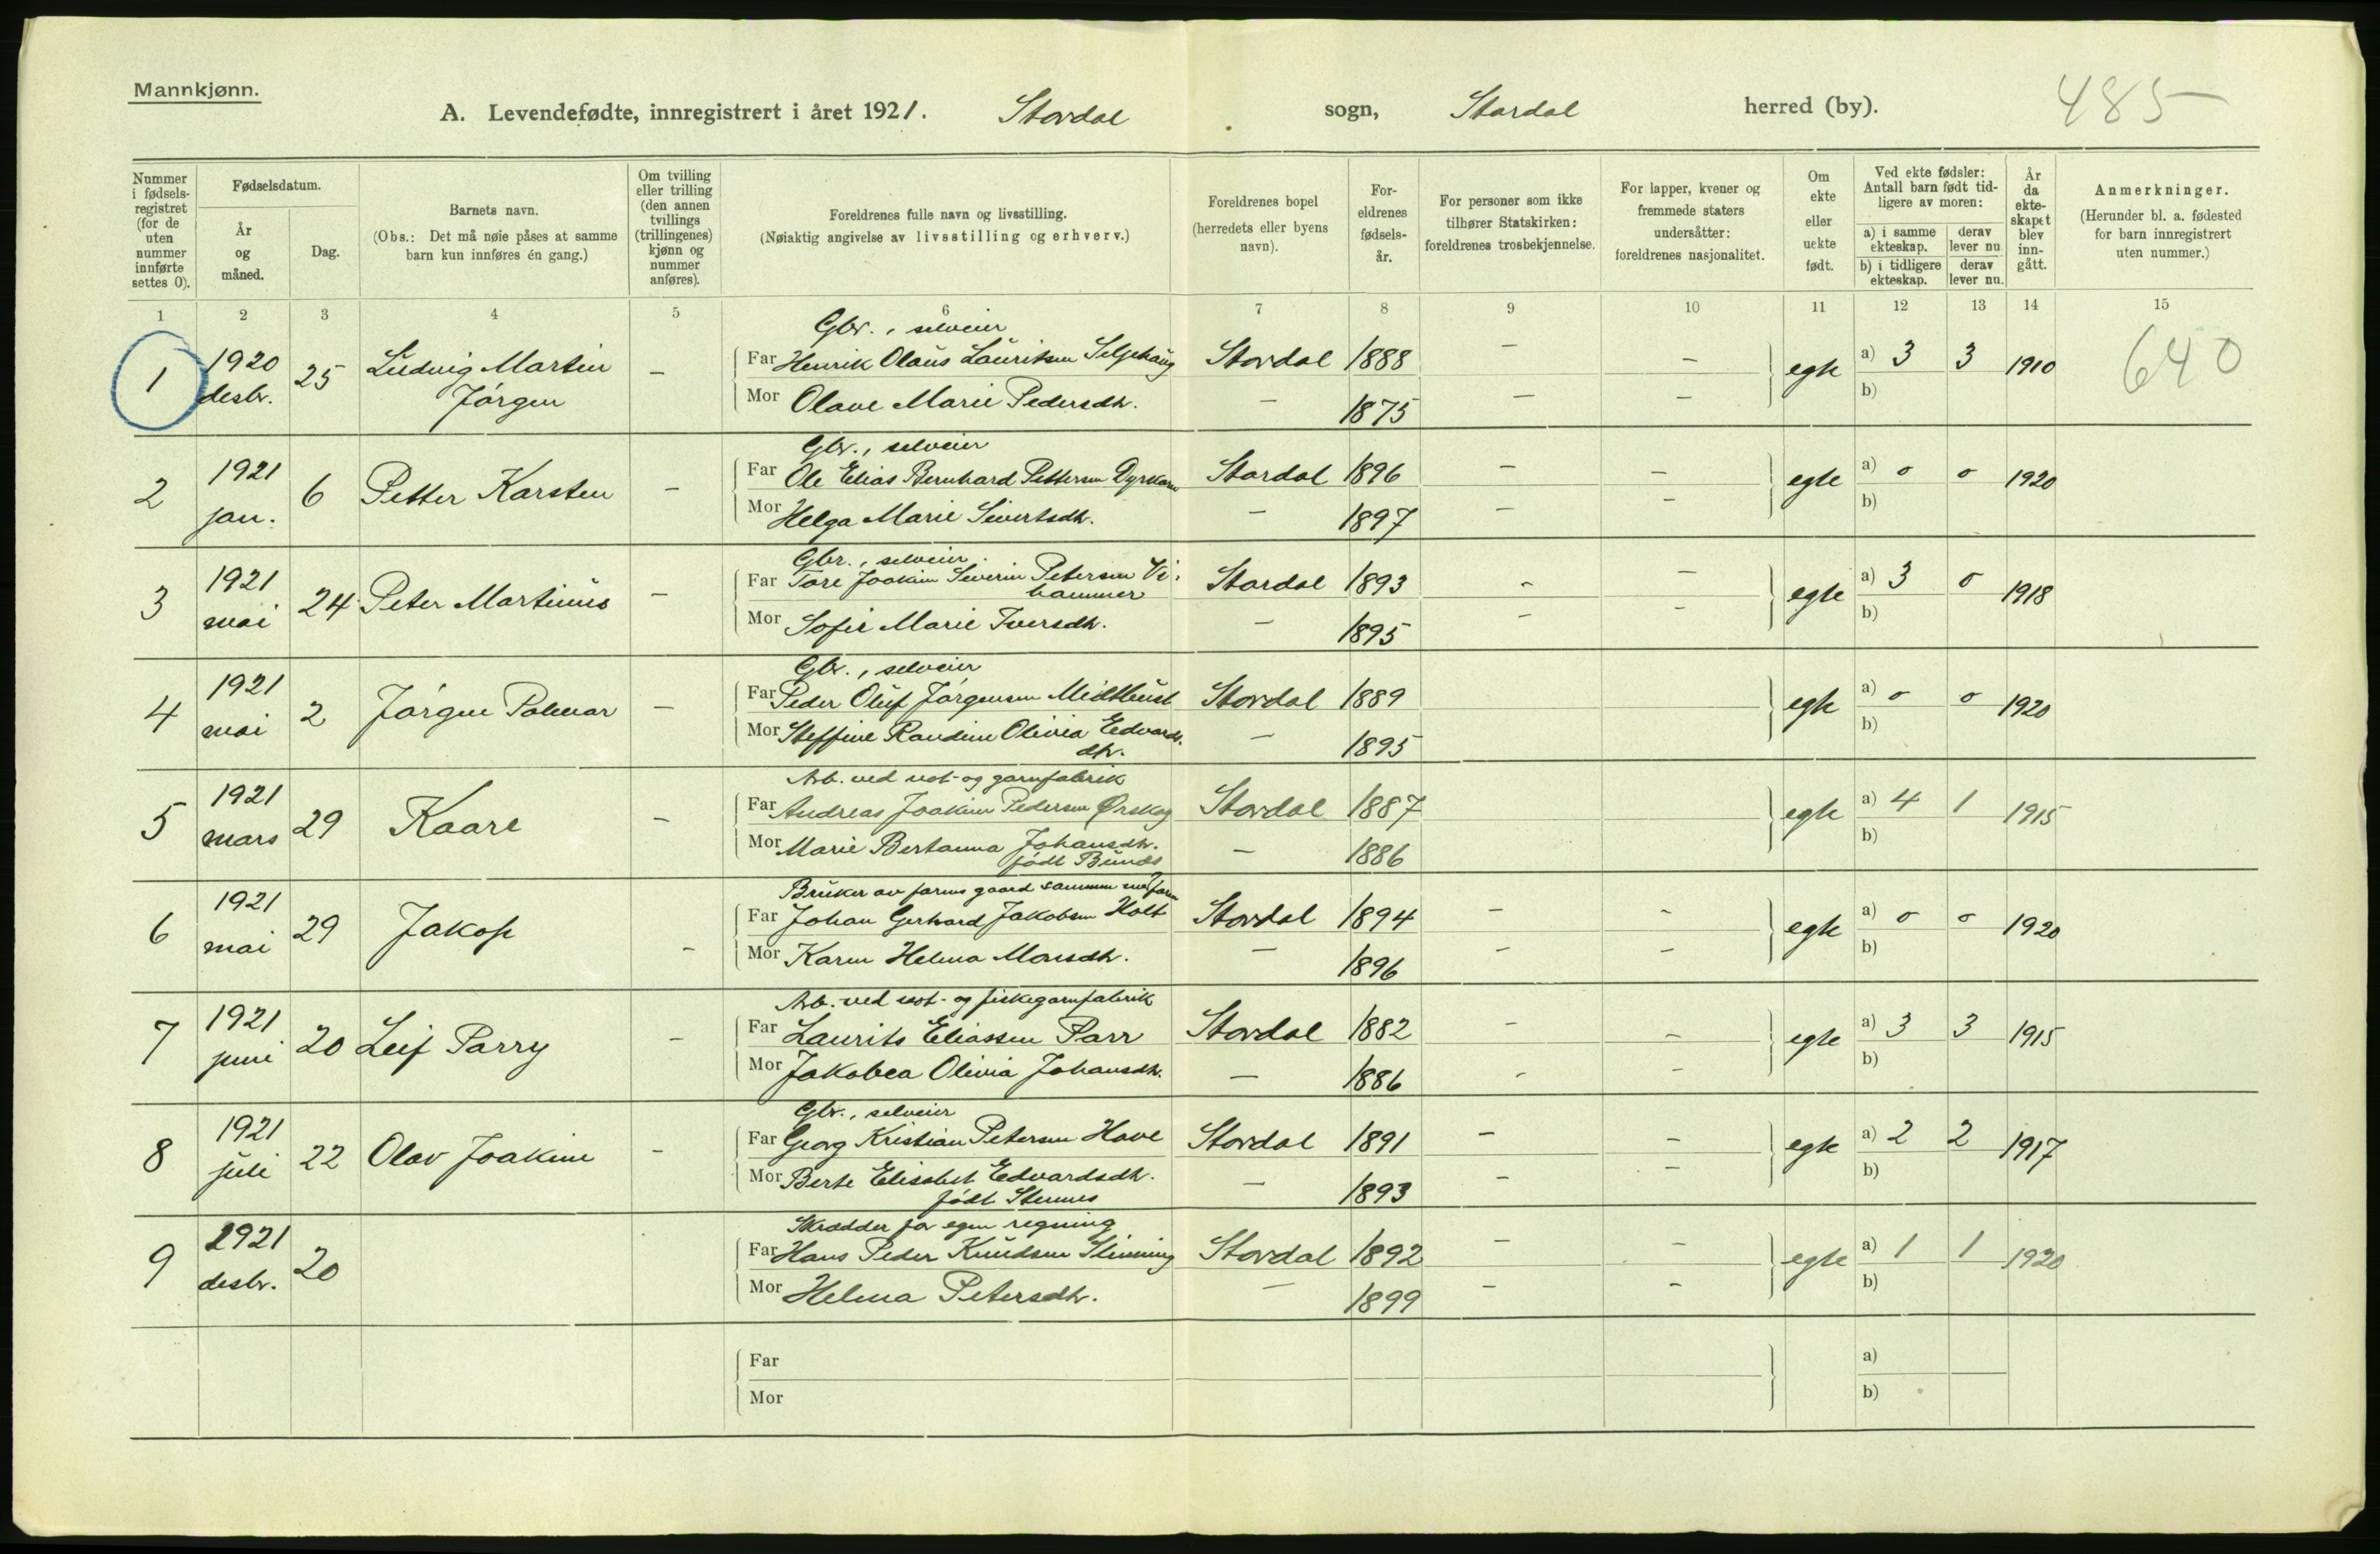 Mannkjønn.
A. Levendefødte, innregistrert i året 1921. Stordal sogn, Stordal herred (by). 485
Nummer i fødsels-registret (for de uten nummer innførte settes 0).
Fødselsdatum.
År og måned.
Dag.
Barnets navn.
(Obs.: Det må nøie påses at samme barn kun innføres én gang.)
Om tvilling eller trilling (den annen tvillings (trillingenes) kjønn og nummer anføres).
Foreldrenes fulle navn og livsstilling.
(Nøiaktig angivelse av livsstilling og erhverv.)
Foreldrenes bopel (herredets eller byens navn).
For-eldrenes fødsels-år.
For personer som ikke tilhører Statskirken: foreldrenes trosbekjennelse.
For lapper, kvener og fremmede staters undersåtter: foreldrenes nasjonalitet.
Om ekte eller uekte født.
Ved ekte fødsler: Antall barn født tid-ligere av moren:
a) i samme ekteskap. derav lever nu
b) i tidligere ekteskap. derav lever nu.
År da ekte-skapet blev inn-gått.
Anmerkninger.
(Herunder bl. a. fødested for barn innregistrert uten nummer.)
1 2 3 4 5 6 7 8 9 10 11 12 13 14 15
Gbr., selveier
1 1920 desbr. 25 Ludvig Martin Jørgen - Far Henrik Olaus Lauritsen Seljehaug Stordal 1888 - - egte a) 3 3 1910 640
Mor Olave Marie Pedersdtr. - 1875 - - b)
Gbr., selveier
2 1921 jan. 6 Petter Karsten - Far Ole Elias Bernhard Pettersen Dyrkorn Stordal 1896 - - egte a) o o 1920
Mor Helga Marie Sivertsdtr. - 1897 - - b)
Gbr., selveier
3 1921 mai 24 Peter Martinus - Far Tore Joakim Severin Petersen Vi-hammer Stordal 1893 - - egte a) 3 o 1918
Mor Sofie Marie Iversdtr. - 1895 - - b)
Gbr., selveier
4 1921 mai 2 Jørgen Palmar - Far Peder Oluf Jørgensen Midthust Stordal 1889 egte a) o o 1920
Mor Steffine Randine Olivia Edvards-dtr. - 1895 b)
Arb. ved not- og garnfabrik
5 1921 mars 29 Kaare - Far Andreas Joakim Pedersen Ørskog Stordal 1887 egte a) 4 1 1915
Mor Marie Bertanna Johansdtr. født - 1886 b)
Bruker av farens gaard sammen med faren
6 1921 mai 29 Jakop - Far Johan Gerhard Jakobsen Holt Stordal 1894 - - egte a) o o 1920
Mor Karen Helena Monsdtr. - 1896 - - b)
Arb. ved not- og fiskegarnfabrik
7 1921 juni 20 Leif Parry - Far Laurits Eliassen Parr Stordal 1882 - - egte a) 3 3 1915
Mor Jakobea Olivia Johansdtr. - 1886 - - b)
Gbr., selveier
8 1921 juli 22 Olav Joakim - Far Georg Kristian Petersen Hove Stordal 1891 - - egte a) 2 2 1917
Mor Berte Elisabet Edvardsdtr. født - 1893 - - b)
Skrædder for egen regning
9 1921 desbr. 20 Far Hans Peder Knudsen Stordal 1892 - - egte a) 1 1 1920
Mor Helena Petersdtr. - 1899 - - b)
Far a)
Mor b)